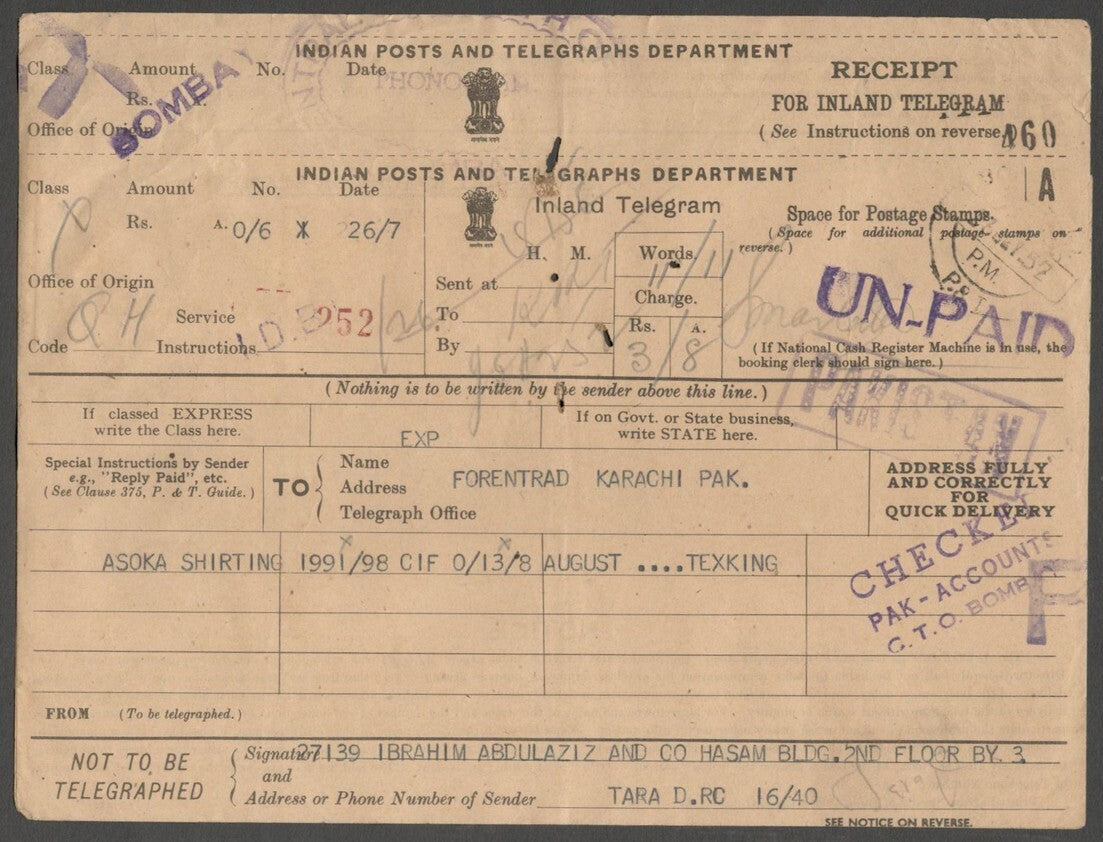 INDIAN POSTS AND TELEGRAPHS DEPARTMENT
Class Amount No. Date
Rs. A.
BOMBAY
Office of Origin
RECEIPT
FOR INLAND TELEGRAM
(See Instructions on reverse
060
INDIAN POSTS AND TELEGRAPHS DEPARTMENT
A
Class Amount No. Date
X
Rs. A. 0/6 X 26/7
Office of Origin
Q H
Service
252
Code Instructions
I.D.B
Inland Telegram
H. M.
Sent at
To
By
Words.
11/11
Charge.
Rs. A.
3/8
Space for Postage Stamps.
(Space for additional postage stamps on
reverse.)
52
P.M.
UN-PAID
(If National Cash Register Machine is in use, the
booking clerk should sign here.)
(Nothing is to be written by the sender above this line.)
If classed EXPRESS
write the Class here.
EXP
If on Govt. or State business,
write STATE here.
Special Instructions by Sender
e.g., "Reply Paid", etc.
(See Clause 375, P. & T. Guide.)
TO
Name
Address
Telegraph Office
FORENTRAD KARACHI PAK.
ADDRESS FULLY
AND CORRECTLY
FOR
QUICK DELIVERY
ASOKA SHIRTING 1991/98 CIF 0/13/8 AUGUST ....TEXKING
CHECKED
PAK-ACCOUNTS
C.T.O. BOMBAY
F
FROM (To be telegraphed.)
NOT TO BE
TELEGRAPHED
Signature 27139 IBRAHIM ABDULAZIZ AND CO HASAM BLDG.2ND FLOOR BY.3.
and
Address or Phone Number of Sender TARA D.RC 16/40
SEE NOTICE ON REVERSE.